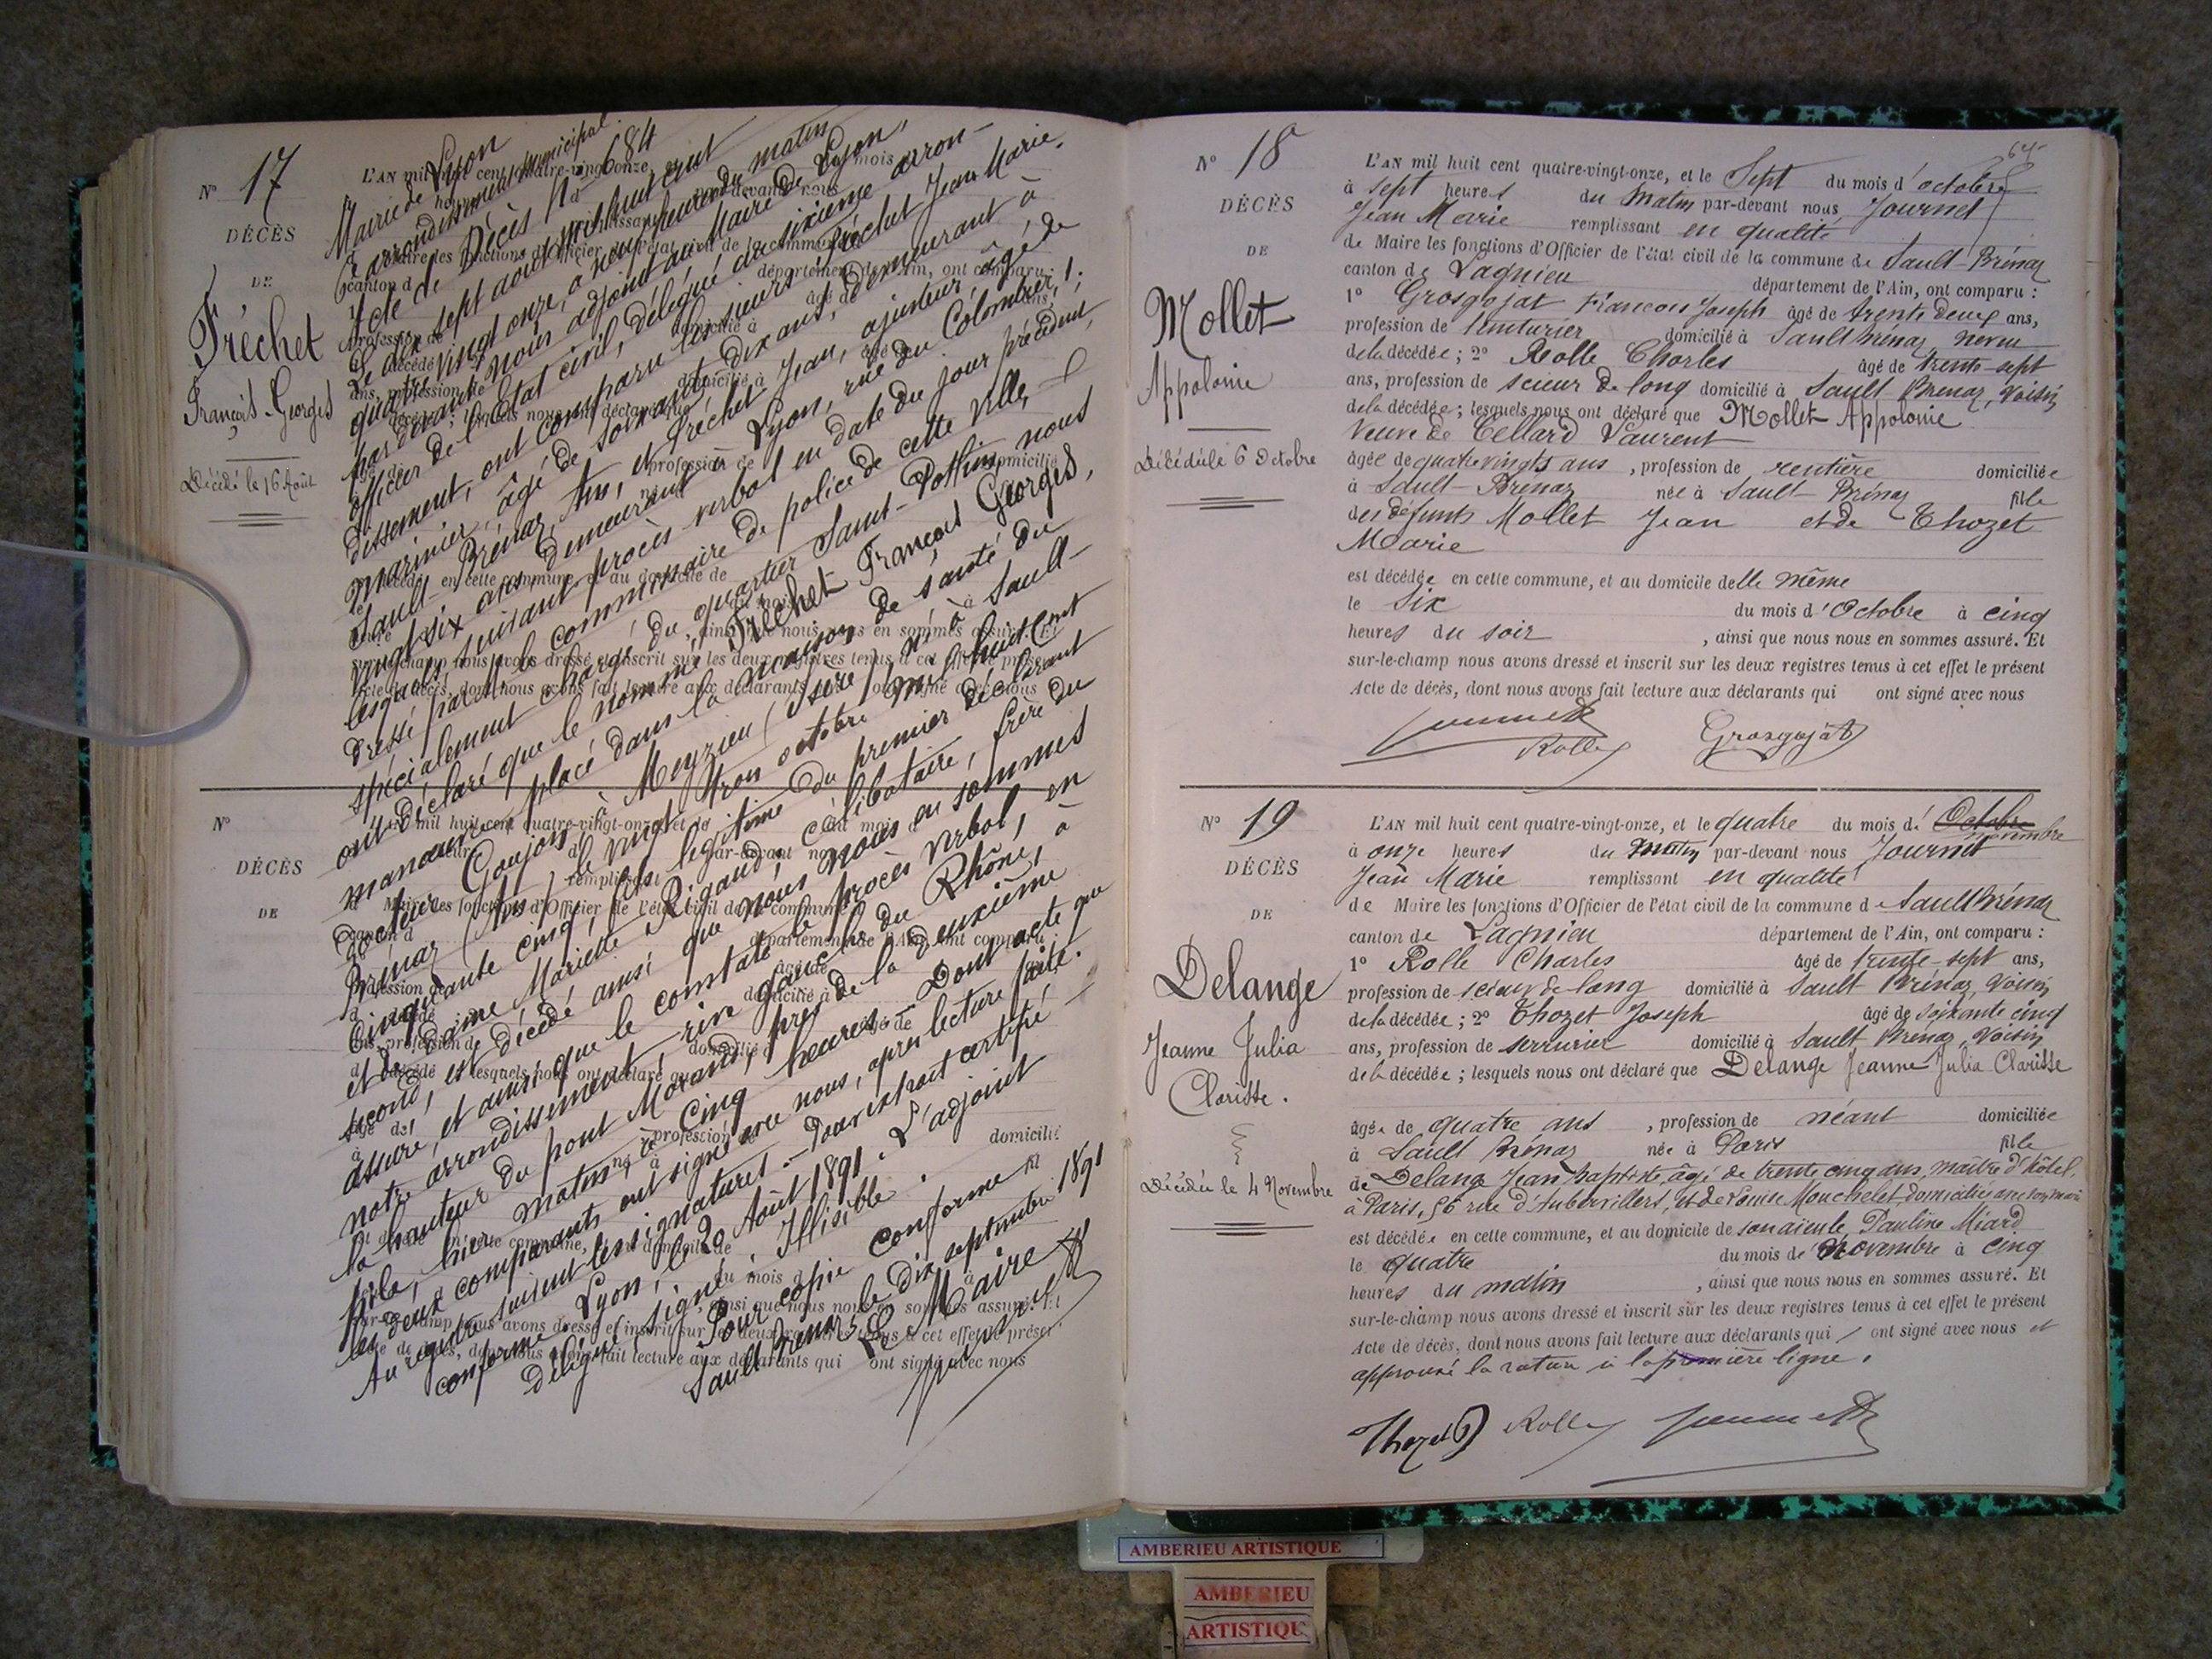 N° 17
DÉCÈS
DE
Fréchet
François-Georges
Décédé le 16 Août
Mairie de Lyon
6e arrondissement municipal.
Acte de Décès N° 684
Le dix sept août mil huit cent
quatre vingt onze, à neuf heures du matin
par devant nous adjoint au Maire de Lyon,
officier de l'état civil, délégué du sixième arron-
dissement, ont comparu les sieurs Fréchet Jean Marie,
marinier, âgé de soixante dix ans, demeurant à
Sault-Brénaz, Ain, et Fréchet Jean, ajusteur, âgé de
vingt six ans, demeurant à Lyon, rue du Colombier, 1;
lesquels, suivant procès verbal en date du jour précédent,
dressé par le commissaire de police de cette ville,
spécialement chargé du quartier Saint-Pothin nous
ont déclaré que le nommé Fréchet François Georges,
manœuvre, placé dans la maison de santé du
docteur Coujois à Meyzieu (Isère), né à Sault-
Brénaz (Ain), le vingt trois octobre mil huit cent
cinquante cinq, fils légitime du premier déclarant
et de Dame Mariette Rigaud, célibataire, frère du
second, est décédé ainsi que nous nous en sommes
assuré, et ainsi que le constate le procès verbal, en
notre arrondissement, rive gauche du Rhône, à
la hauteur du pont Morand, près de la deuxième
pile, hier matin, à cinq heures. Dont acte que
les deux comparants ont signé avec nous, après lecture faite.
Au registre suivent les signatures. Pour extrait certifié
conforme. Lyon, le 20 Août 1891. L'adjoint
Délégué, signé: Illisible.
Pour copie conforme
Sault Brénaz le dix septembre 1891
Le Maire
N°
DÉCÈS
DE
N° 18
DÉCÈS
DE
Mollet
Appolonie
Décédée le 6 Octobre
L'AN mil huit cent quatre-vingt-onze, et le Sept du mois d'octobre
à sept heures du matin par-devant nous Journet
Jean Marie remplissant en qualité
de Maire les fonctions d'Officier de l'état civil de la commune de Sault-Brénaz
canton de Lagnieu département de l'Ain, ont comparu :
1° Grosgojat François Joseph âgé de trente deux ans,
profession de teinturier domicilié à Sault Brénaz, neveu
de la décédée ; 2° Rolle Charles âgé de trente-sept
ans, profession de scieur de long domicilié à Sault Brénaz, voisin
de la décédée ; lesquels nous ont déclaré que Mollet Appolonie
Veuve de Cellard Laurent
âgée de quatre vingts ans, profession de rentière domiciliée
à Sault-Brénaz née à Sault-Brénaz fille
des défunts Mollet Jean et de Thozet
Marie
est décédée en cette commune, et au domicile delle même
le six du mois d'Octobre à cinq
heures du soir, ainsi que nous nous en sommes assuré. Et
sur-le-champ nous avons dressé et inscrit sur les deux registres tenus à cet effet le présent
Acte de décès, dont nous avons fait lecture aux déclarants qui ont signé avec nous
Rolle Grosgojat
N° 19
DÉCÈS
DE
Delange
Jeanne Julia
Clarisse.
Décédée le 4 Novembre
L'AN mil huit cent quatre-vingt-onze, et le quatre du mois d' Octobre novembre
à onze heures du matin par-devant nous Journet
Jean Marie remplissant en qualité
de Maire les fonctions d'Officier de l'état civil de la commune de Sault Brénaz
canton de Lagnieu département de l'Ain, ont comparu :
1° Rolle Charles âgé de trente-sept ans,
profession de scieur de long domicilié à Sault Brénaz, voisin
de la décédée ; 2° Thozet Joseph âgé de soixante cinq
ans, profession de serrurier domicilié à Sault Brénaz, voisin
de la décédée ; lesquels nous ont déclaré que Delange Jeanne Julia Clarisse
âgée de quatre ans, profession de néant domiciliée
à Sault Brénaz née à Paris fille
de Delange Jean baptiste, âgé de trente cinq ans, maître d'hôtel,
à Paris, 56 rue d'Aubervillers, et de Louise Mouchelet, domiciliée avec son mari
est décédée en cette commune, et au domicile de son aïeule, Pauline Miard
le quatre du mois de Novembre à cinq
heures du matin, ainsi que nous nous en sommes assuré. Et
sur-le-champ nous avons dressé et inscrit sur les deux registres tenus à cet effet le présent
Acte de décès, dont nous avons fait lecture aux déclarants qui ont signé avec nous et
approuvé la rature à la première ligne.
Thozet Rolle
AMBERIEU ARTISTIQUE
AMBERIEU
ARTISTIQU